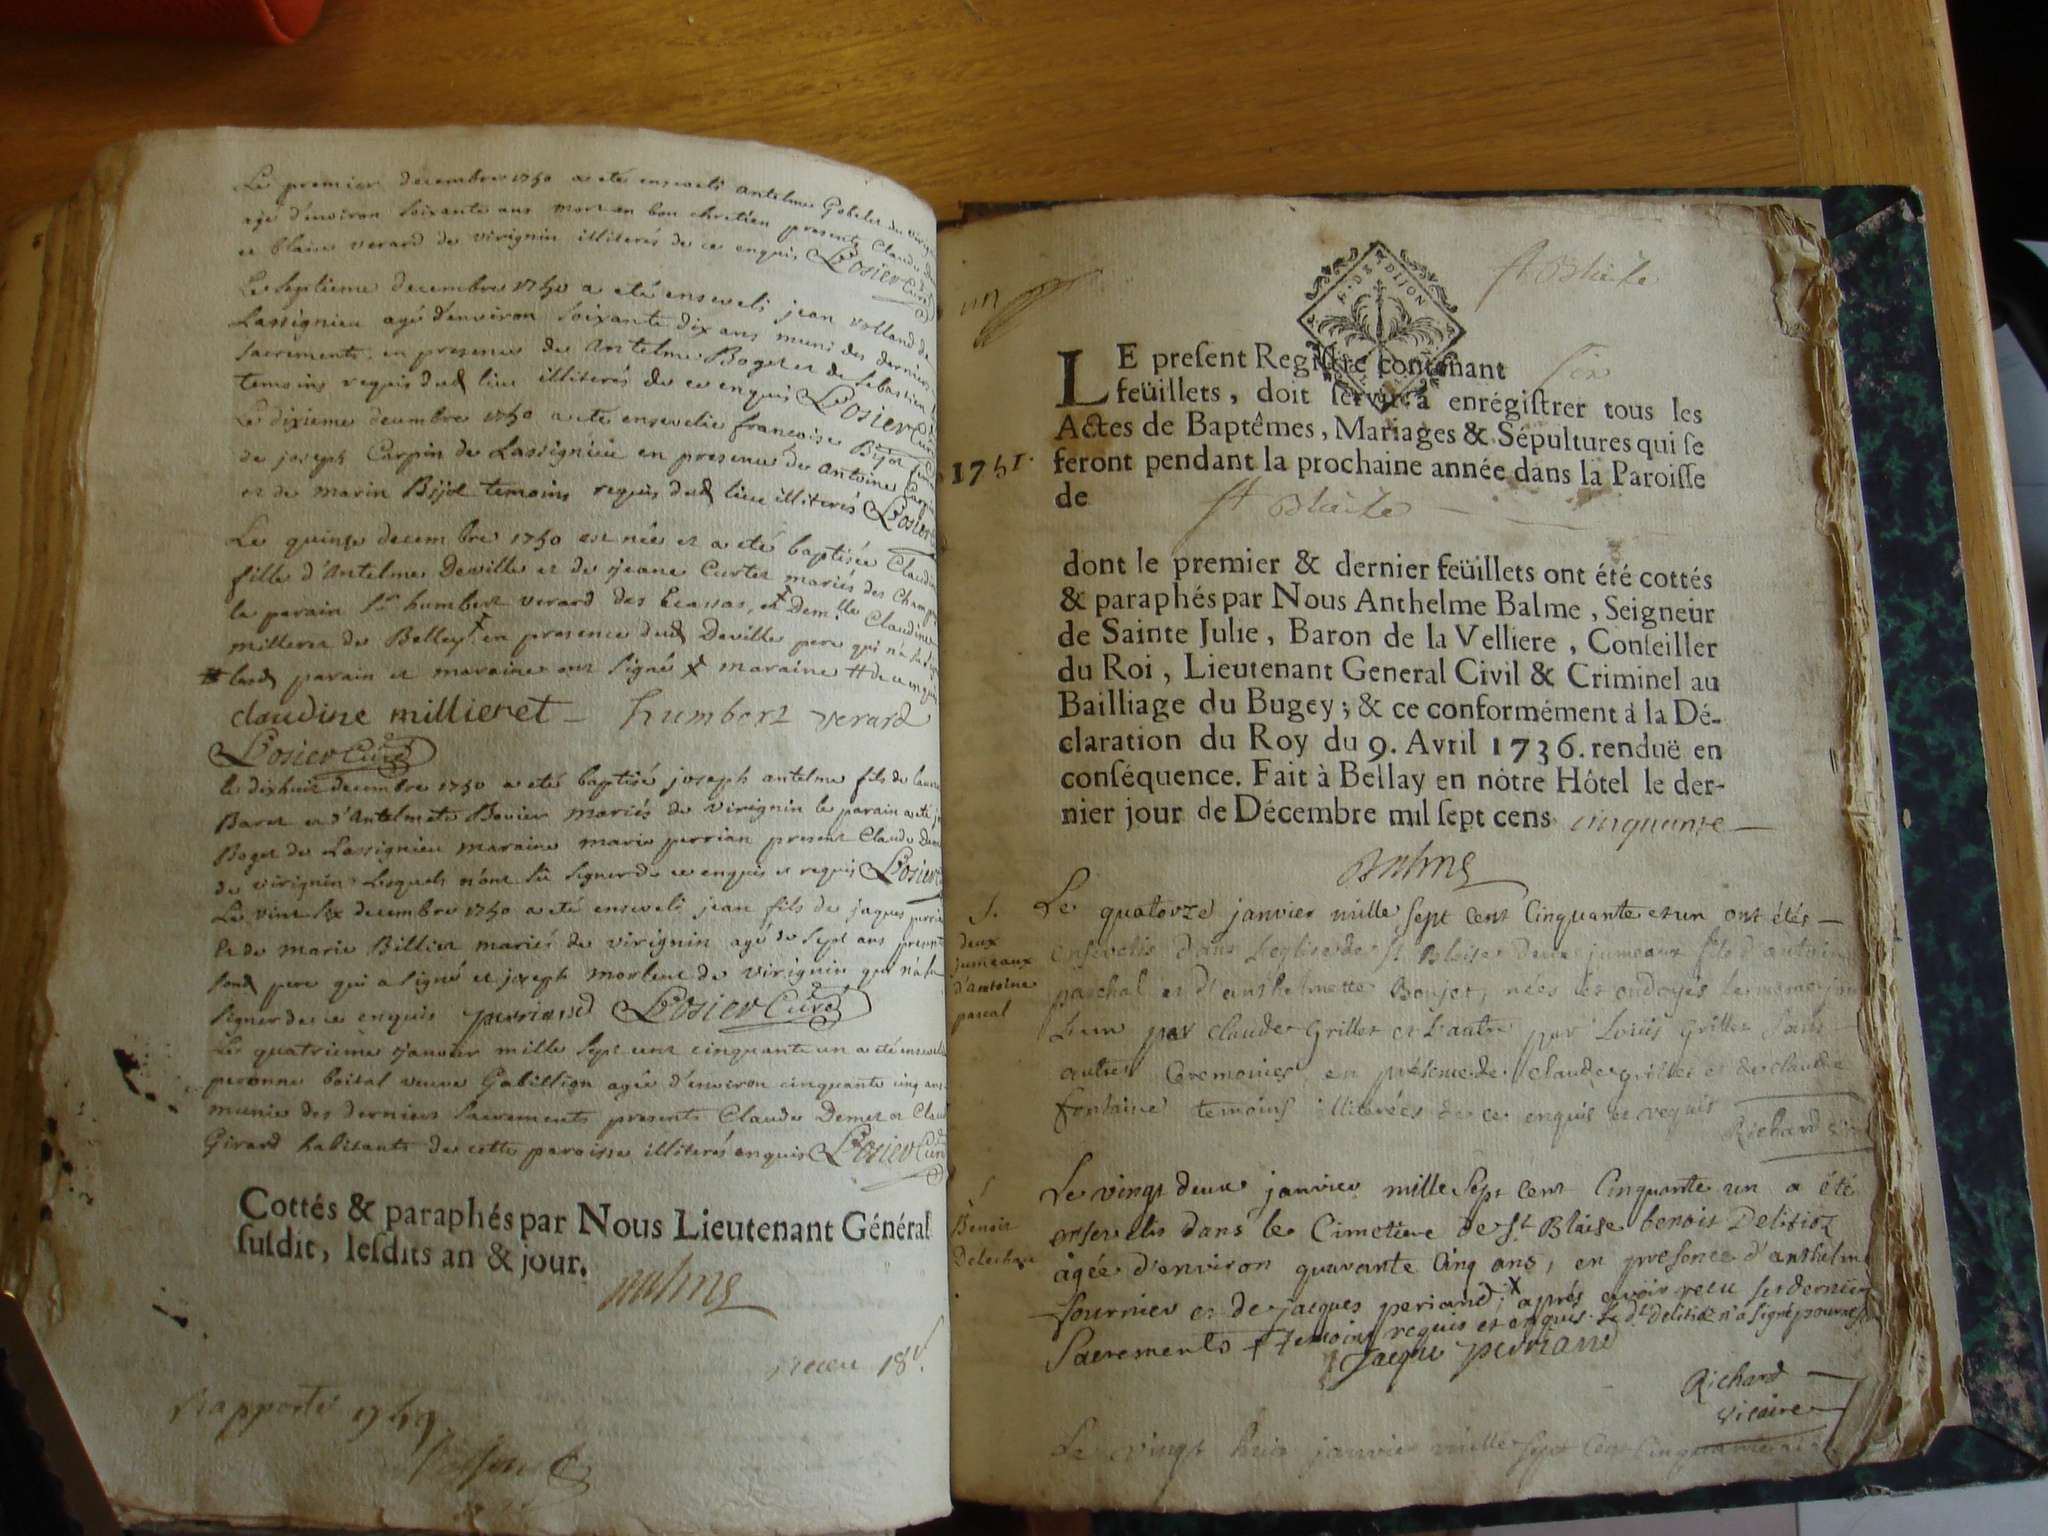 Le premier decembre 1750 a eté enseveli antelme Gobelet de
age d'environ soixante ans mort en bon chretien presents Claude
et blaise verard de virignin illiterés de ce enquis Losier Curé
Le septieme decembre 1750 a eté enseveli jean volland de
Lassignieu agé d'environ soixante dix ans muni des derniers
sacrements en presence de Antelme Boget et de sebastien
temoins requis dud lieu illiterés de ce enquis Losier Curé
Le dixieme decembre 1750 a eté ensevelie francoise Bijot
de joseph Carpin de Lassignieu en presence de antoine Carpin
et de marin Bijot temoins requis dud lieu illiterés Losier
Le quinze decembre 1750 est née et a eté baptisée Claudine
fille d'Antelme Deville et de jeane Curtet mariés des
le parain Sr humbert verard des Ecassas, et Demlle Claudine
milleret de Belley en presence dud Deville pere qui n'a
lesd parain et maraine ont signé maraine de ce enquis
claudine millieret humbert verard
Losier Curé
le dixhuit decembre 1750 a eté baptisé joseph antelme fils de
Baret et d'Antelmete Bovier mariés de virignin le parain a eté
Boget de Lassignieu maraine marie perrian present Claude
de virignin Lesquels n'ont su signer de ce enquis et requis Losier
Le vint six decembre 1750 a eté enseveli jean fils de jaques
et de marie Billiet mariés de virignin agé de sept ans present
sond pere qui a signé et joseph morlent de virignin qui n'a su
signer de ce enquis perriand Losier Curé
Le quatrieme janvier mille sept cent cinquante un a eté ensevelie
peronne boital veuve Gabillion agée d'environ cinquante cinq ans
munie des derniers sacrements presents Claude Demet et Claude
Girard habitants de cette paroisse illiterés enquis Losier Curé
Cottés & paraphés par Nous Lieutenant Général
susdit, lesdits an & jour.
Balme
receu 18s
Rapporté
1751.
un
St Blaise
P. DE DIJON
LE present Registre contenant six
feüillets, doit servir à enrégistrer tous les
Actes de Baptêmes, Mariages & Sépultures qui se
feront pendant la prochaine année dans la Paroisse
de St Blaise
dont le premier & dernier feüillets ont été cottés
& paraphés par Nous Anthelme Balme, Seigneur
de Sainte Julie, Baron de la Velliere, Conseiller
du Roi, Lieutenant General Civil & Criminel au
Bailliage du Bugey; & ce conformément à la Dé-
claration du Roy du 9. Avril 1736. renduë en
conséquence. Fait à Bellay en nôtre Hôtel le der-
nier jour de Décembre mil sept cens cinquante
Balme
S.
deux
jumeaux
d'antoine
pascal
Le quatorze janvier mille sept cent Cinquante et un ont étés
ensevelis dans l'eglise de St Blaise deux jumeaux fils d'antoine
paschal et d'anthelmette Boujet, nées et ondoyés le meme jour
L'un par claude Grillet et l'autre par Louis Grillet sans
autres Ceremonies, en présence de claude grillet et de claude
fontaine temoins illiterées de ce enquis et requis
Richard
S
Benoit
Le vingt deux janvier mille sept cent Cinquante un a été
ensevelis dans le Cimetiere de St Blaise benoit Delitioz
agée d'environ quarante Cinq ans, en presence d'anthelme
fournier et de jacques periand, x après avoir recu ses derniers
Sacrements + temoins requis et enquis le dt delitioz n'a signé
Jacque perriand
Richard
vicaire
Le vingt huit janvier mille sept cent cinquante